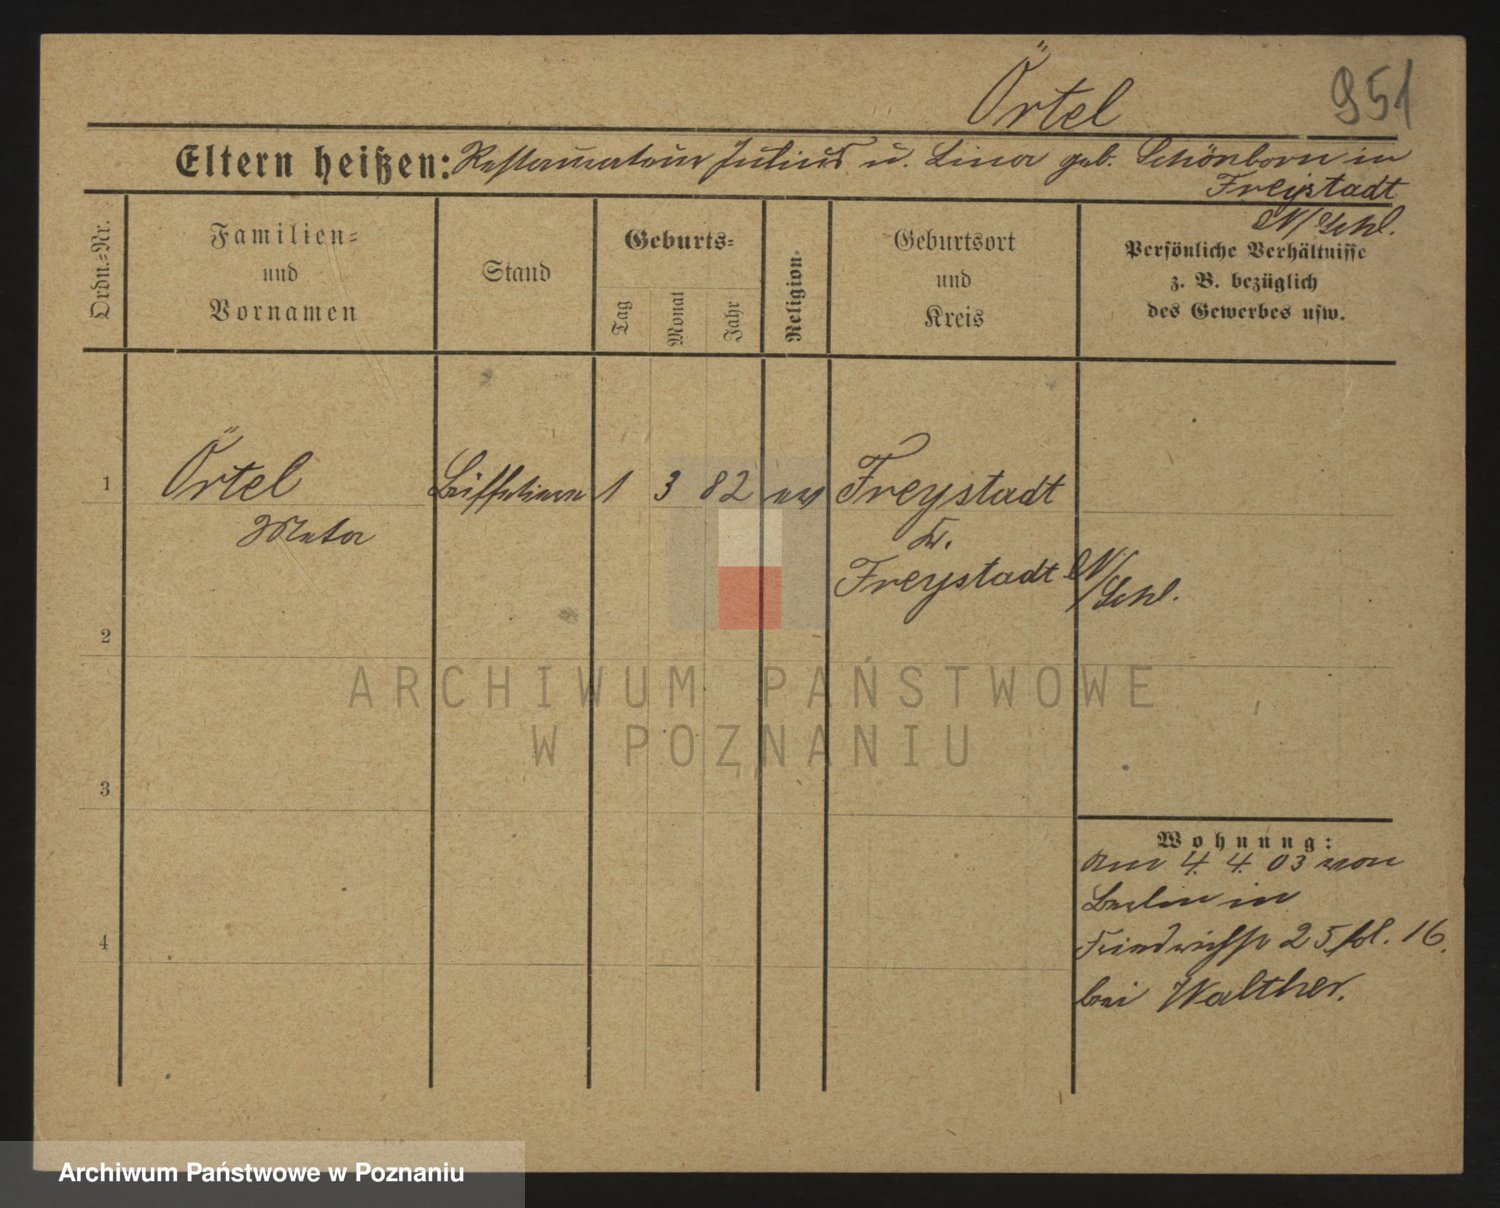 Örtel 951
Eltern heißen: Restaurateur Julius u. Lina geb. Schönborn in
Freystadt
N/Schl.
Ordn.-Nr.
Familien-
und
Vornamen
Stand
Geburts-
Tag
Monat
Jahr
Religion
Geburtsort
und
Kreis
Persönliche Verhältnisse
z. B. bezüglich
des Gewerbes usw.
1 Örtel Büffetiere 1 3 82 ev Freystadt
Meta Kr.
Freystadt N/Schl.
2
3
4
Wohnung:
Am 4. 4. 03 von
Berlin in
25 16.
bei Walther.
ARCHIWUM PAŃSTWOWE
W POZNANIU
Archiwum Państwowe w Poznaniu